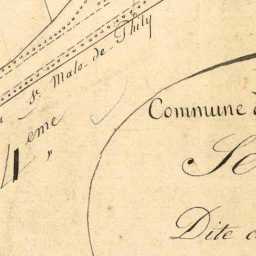 St. Malo-de-Phily
4ème
Commune d
Se
Dite d